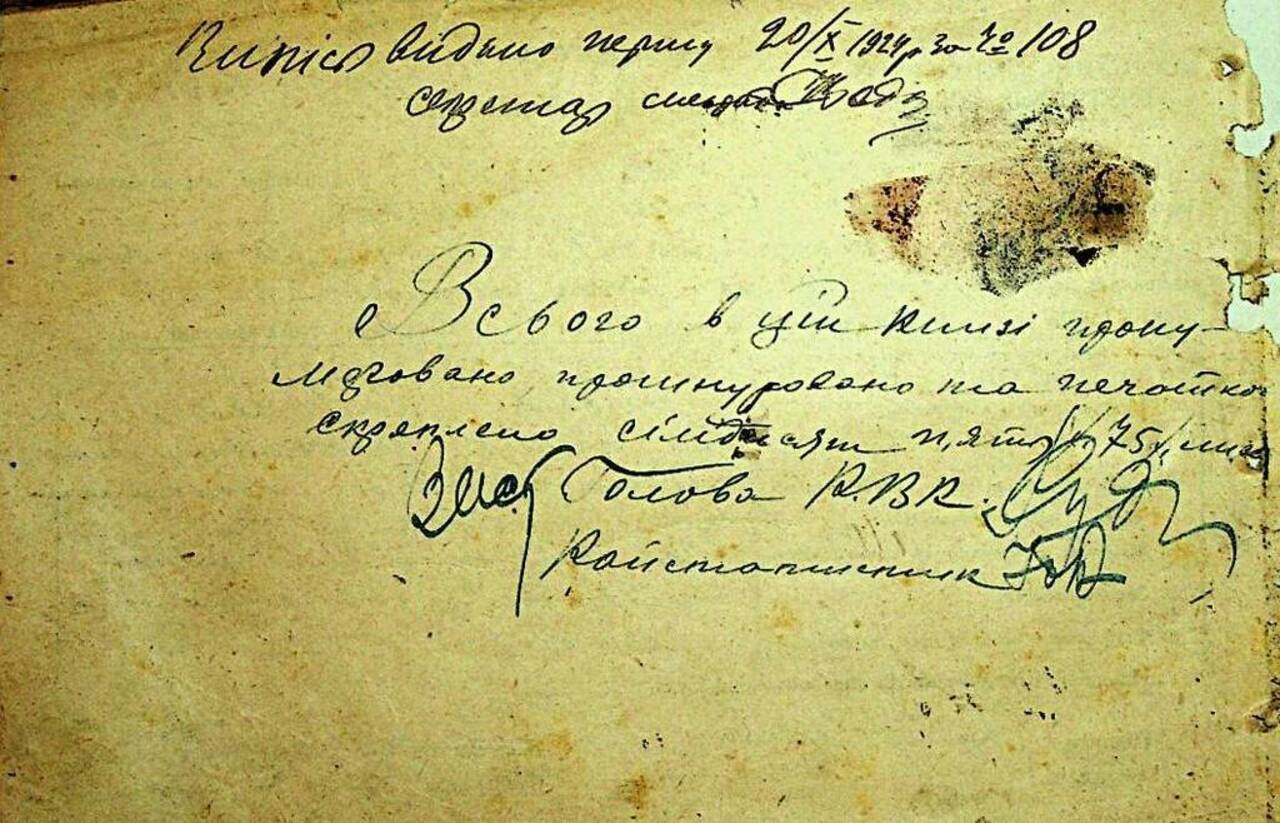 Випіс видано першу 20/X 1924 р за № 108
секретар
Всього в цій книзі прону-
меровано, прошнуровано та печаткою
скряплено сімдесят п'ять /75/ лист
Заст Голова Р.В.К.
Райстатистик